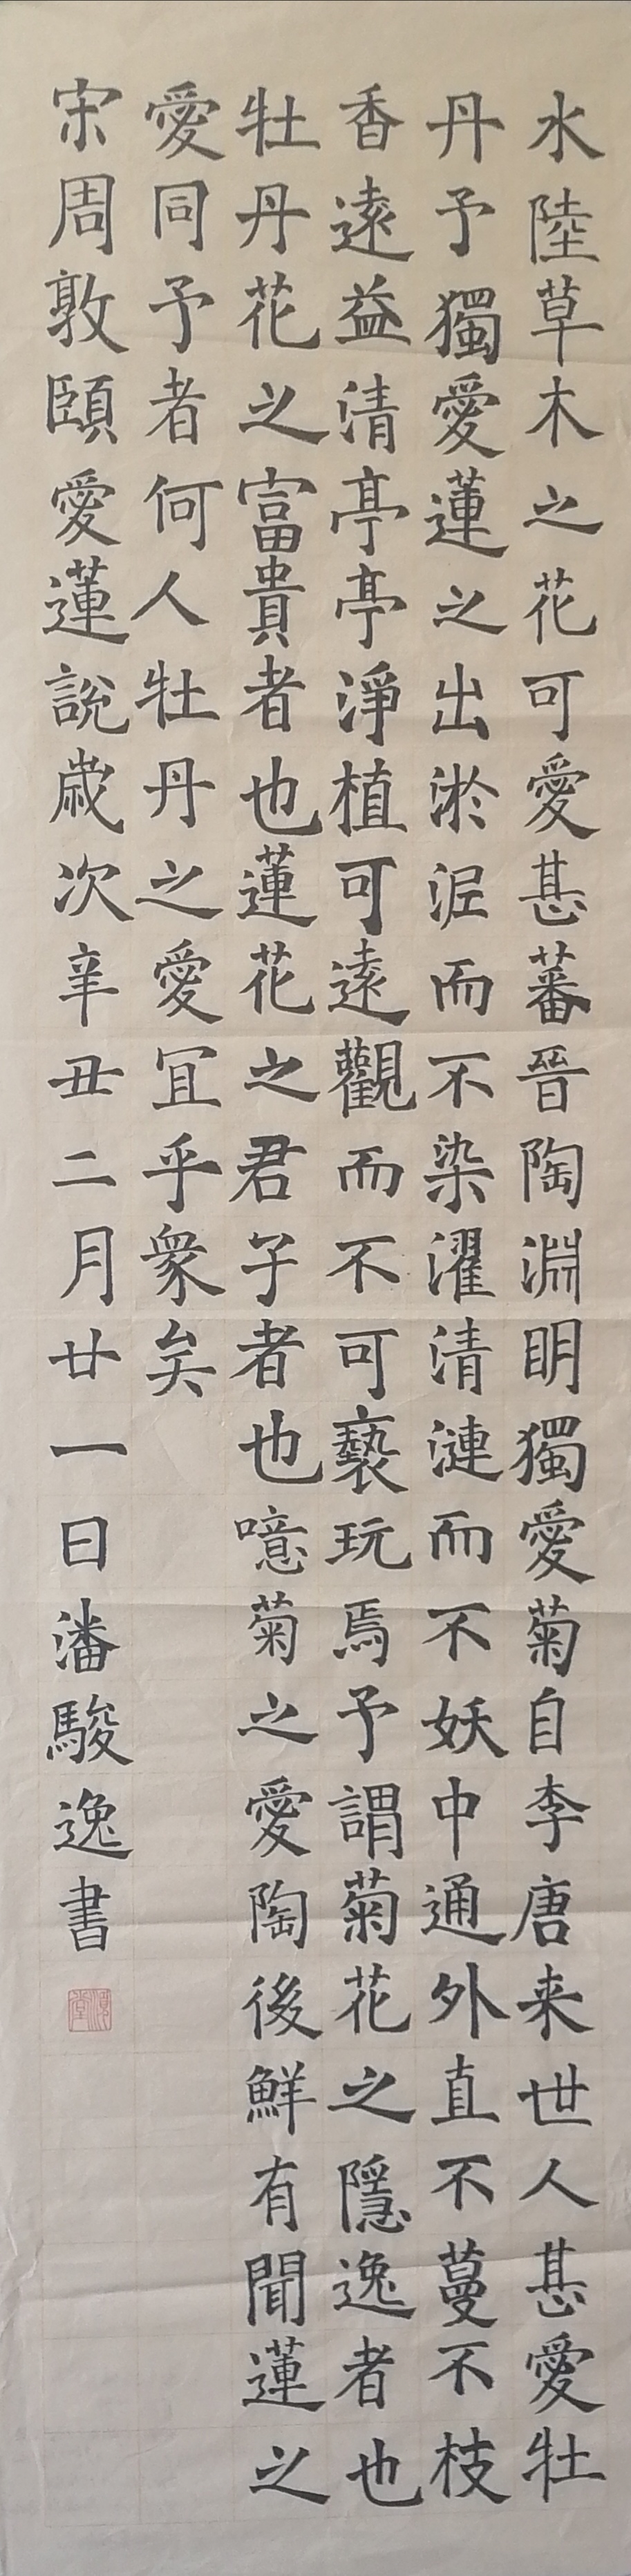 水陸草木之花可愛甚蕃晉陶淵明獨愛菊自李唐来世人甚愛牡
丹予獨愛蓮之出淤泥而不染濯清漣而不妖中通外直不蔓不枝
香遠益清亭亭淨植可遠觀而不可褻玩焉予謂菊花之隱逸者也
牡丹花之富貴者也蓮花之君子者也噫菊之愛陶後鮮有聞蓮之
愛同予者何人牡丹之愛宜乎衆矣
宋周敦頤愛蓮說歲次辛丑二月廿一日潘駿逸書